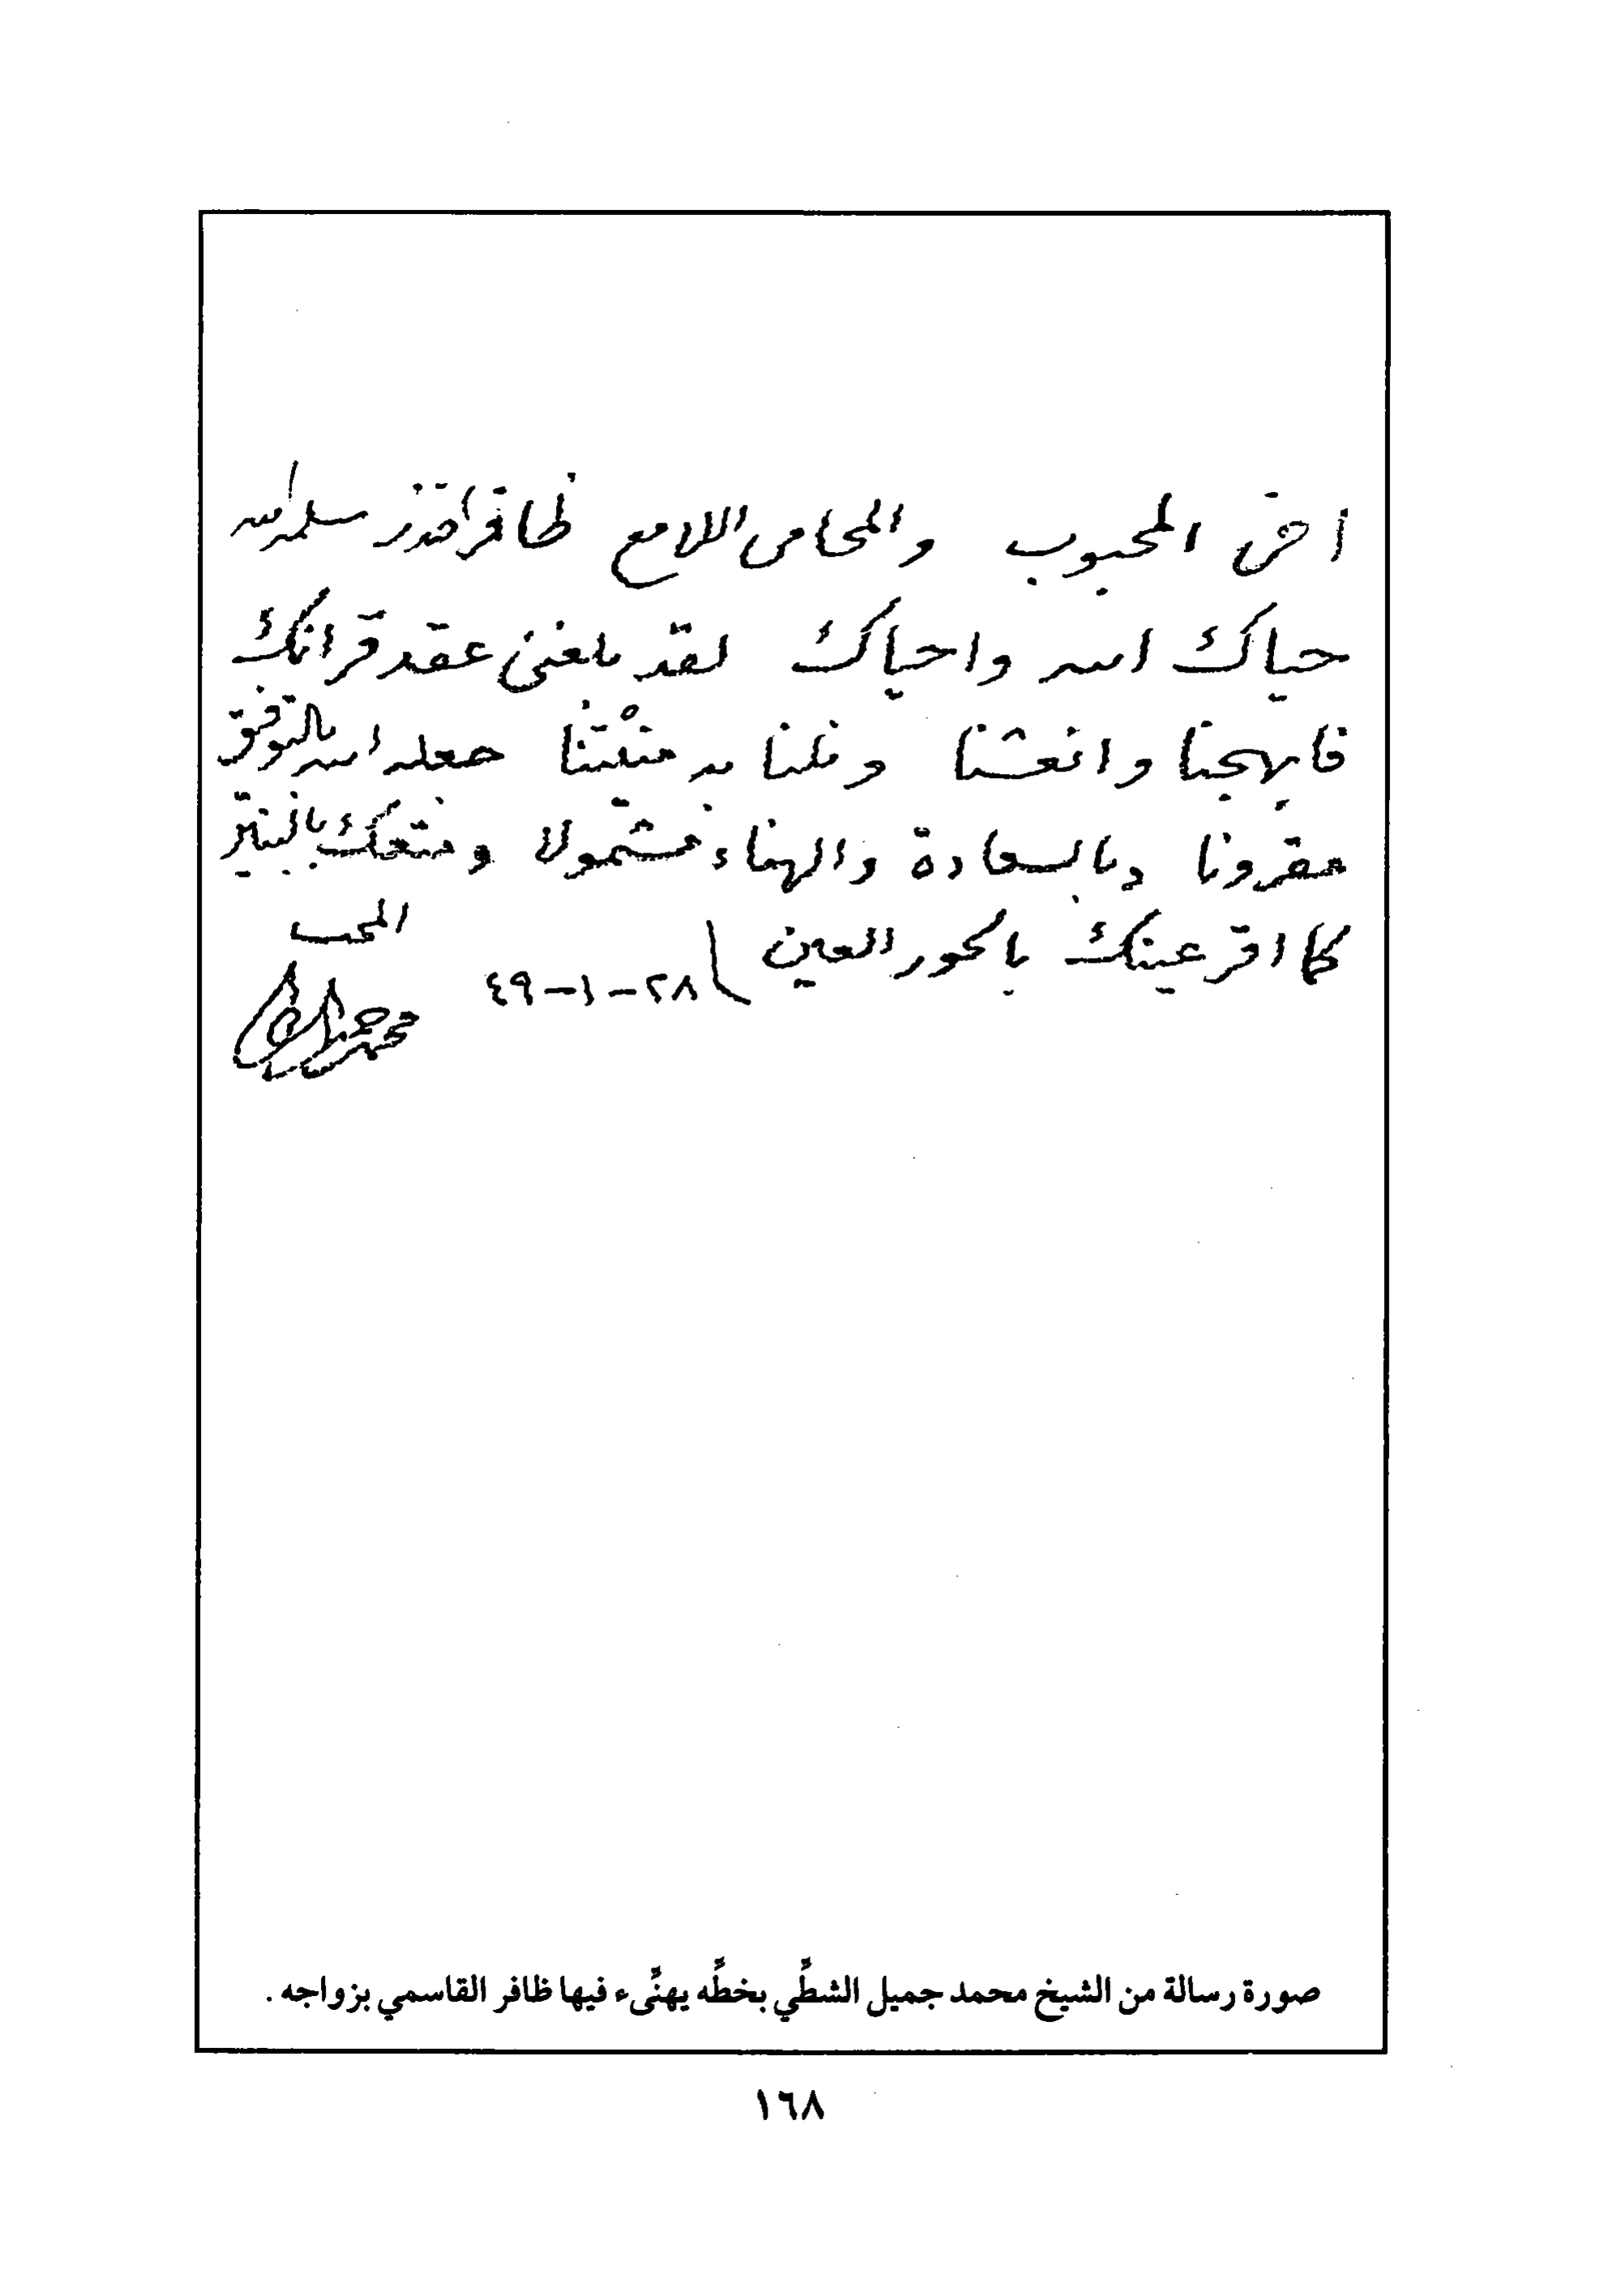 اخي المحبوب والمحامي اللامع ظافر افندي سلمه الله
حياك الله واحياك لقد بلغني عقد قرانك
فابهجنا وانعشنا ونلنا به منيتنا جعله الله بالتوفيق
مقرونا وبالسعادة والهناء مشمولا ومتعك بالبنين
كما اقر عينك بالحور العين
٢٨-١-٤٩
المحب
محمد جميل الشطي
صورة رسالة من الشيخ محمد جميل الشطِّي بخطِّه يهنِّىء فيها ظافر القاسمي بزواجه .
١٦٨